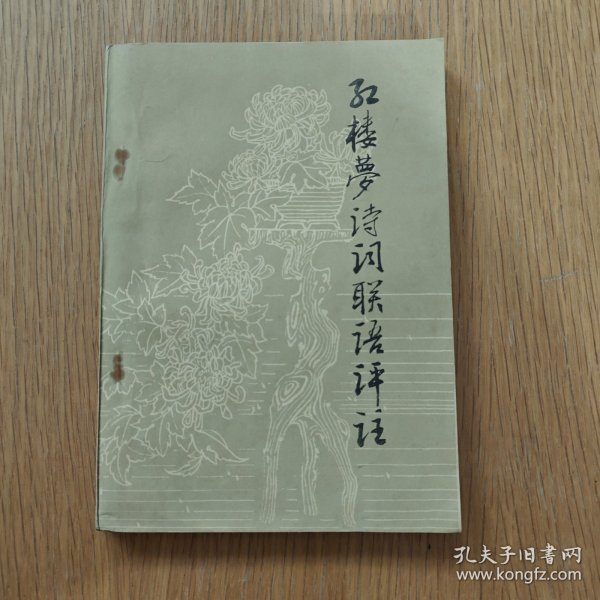 红楼夢诗词联语评註
孔夫子旧書网
www.kongfz.com